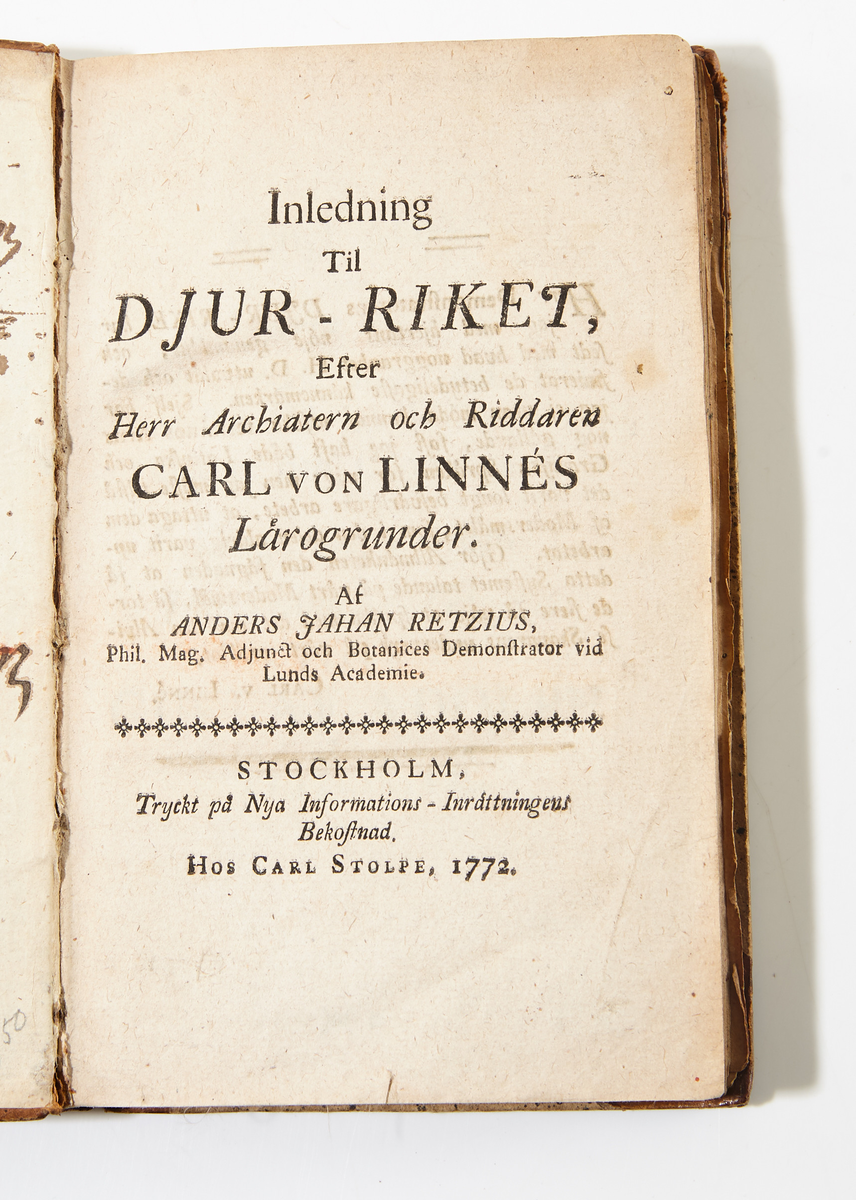 Inledning
Til
DJUR - RIKET,
Efter
Herr Archiatern och Riddaren
CARL VON LINNÉS
Lårogrunder.
Af
ANDERS JAHAN RETZIUS,
Phil. Mag. Adjunct och Botanices Demonſtrator vid
Lunds Academie.
STOCKHOLM,
Tryckt på Nya Informations - Inråttningens
Bekoſtnad.
HOS CARL STOLPE, 1772.
50